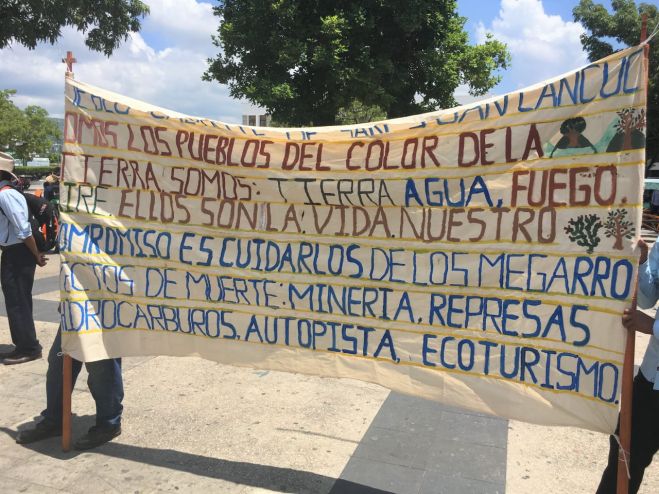 DE SAN JUAN CANCUC
OMOS LOS PUEBLOS DEL COLOR DE LA
TIERRA. SOMOS: TIERRA AGUA, FUEGO.
IRE. ELLOS SON LA VIDA. NUESTRO
OMROMISO ES CUIDARLOS DE LOS MEGARRO
ECTOS DE MUERTE: MINERIA, REPRESAS
HIDROCARBUROS, AUTOPISTA, ECOTURISMO.